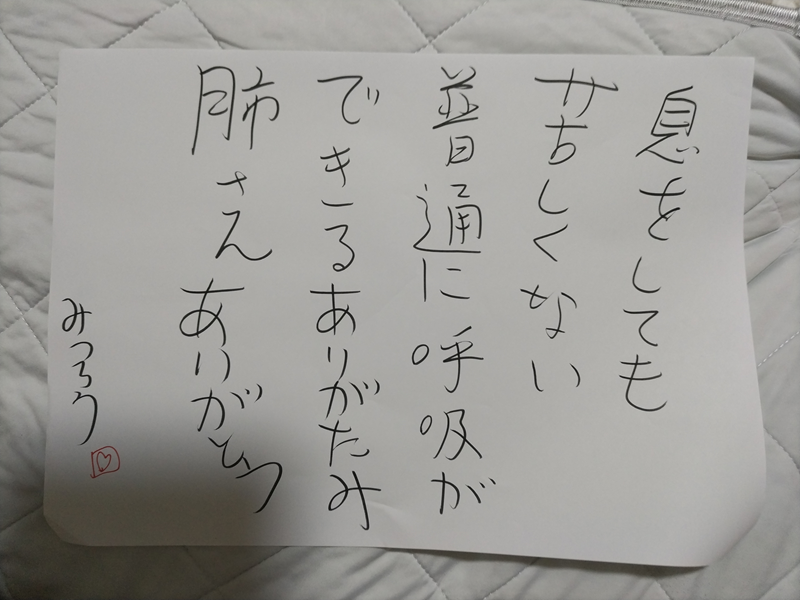 息をしても
苦しくない
普通に呼吸が
できるありがたみ
肺さんありがとう
みつろう